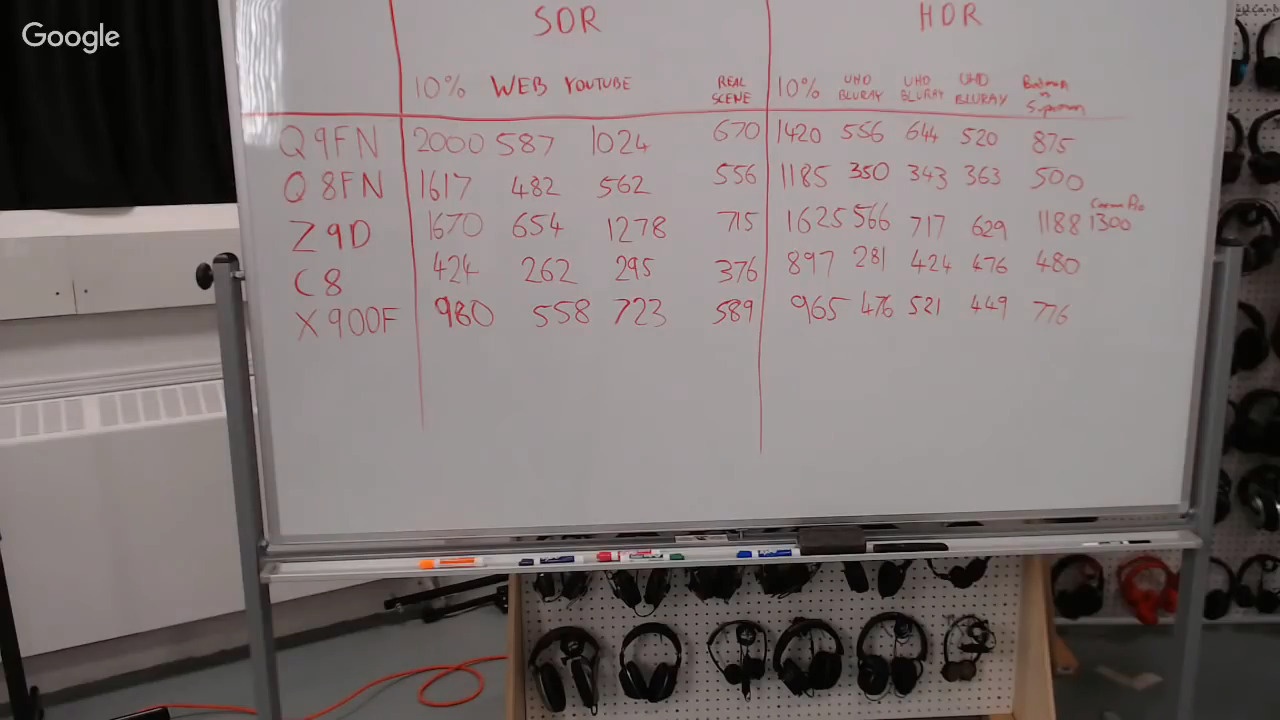 Google
SDR HDR
10% WEB YOUTUBE REAL SCENE 10% UHD BLURAY UHD BLURAY UHD BLURAY Batman v Superman
Q9FN 2000 587 1024 670 1420 556 644 520 875
Q8FN 1617 482 562 556 1185 350 343 363 500
Z9D 1670 654 1278 715 1625 566 717 629 1188 1300
C8 424 262 295 376 897 281 424 476 480
X900F 980 558 723 589 965 476 521 449 776